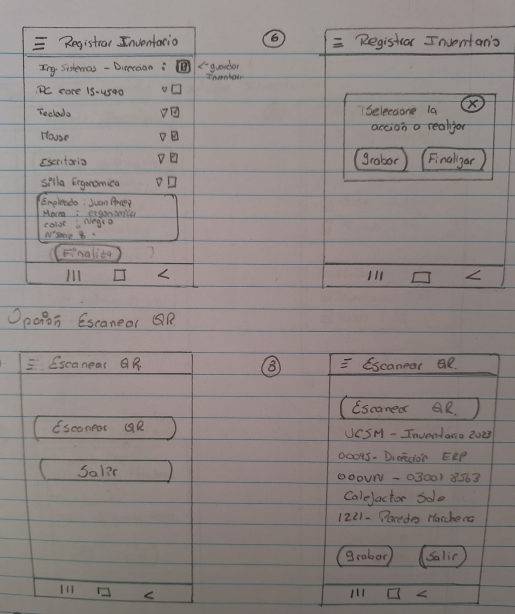 Registrar Inventario
Ing. Sistemas - Direccion :
<- guardar
Inventari
PC core I5-4590
Teclado
Mouse
Escritorio
Silla Ergonomica
Empleado : Juan Perez
Marca : ergonomica
color : Negro
N° serie 8
Finaliza
6
Registrar Inventario
Seleccione la
acción a realizar
Grabar
Finalizar
Opción Escanear QR
Escanear QR
Escanear QR
Salir
3
Escanear QR.
Escanear QR.
UCSM - Inventario 2023
- Director ERP
- 03001 8563
Calefactor Sole
1221 - Paredes Marchena
Grabar
Salir